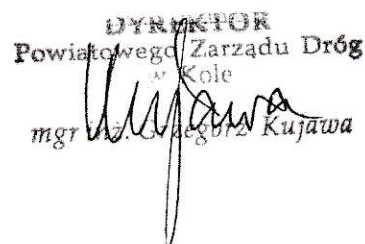 DYREKTOR
Powiatowego Zarządu Dróg
w Kole
mgr inż. Grzegorz Kujawa
Kujawa